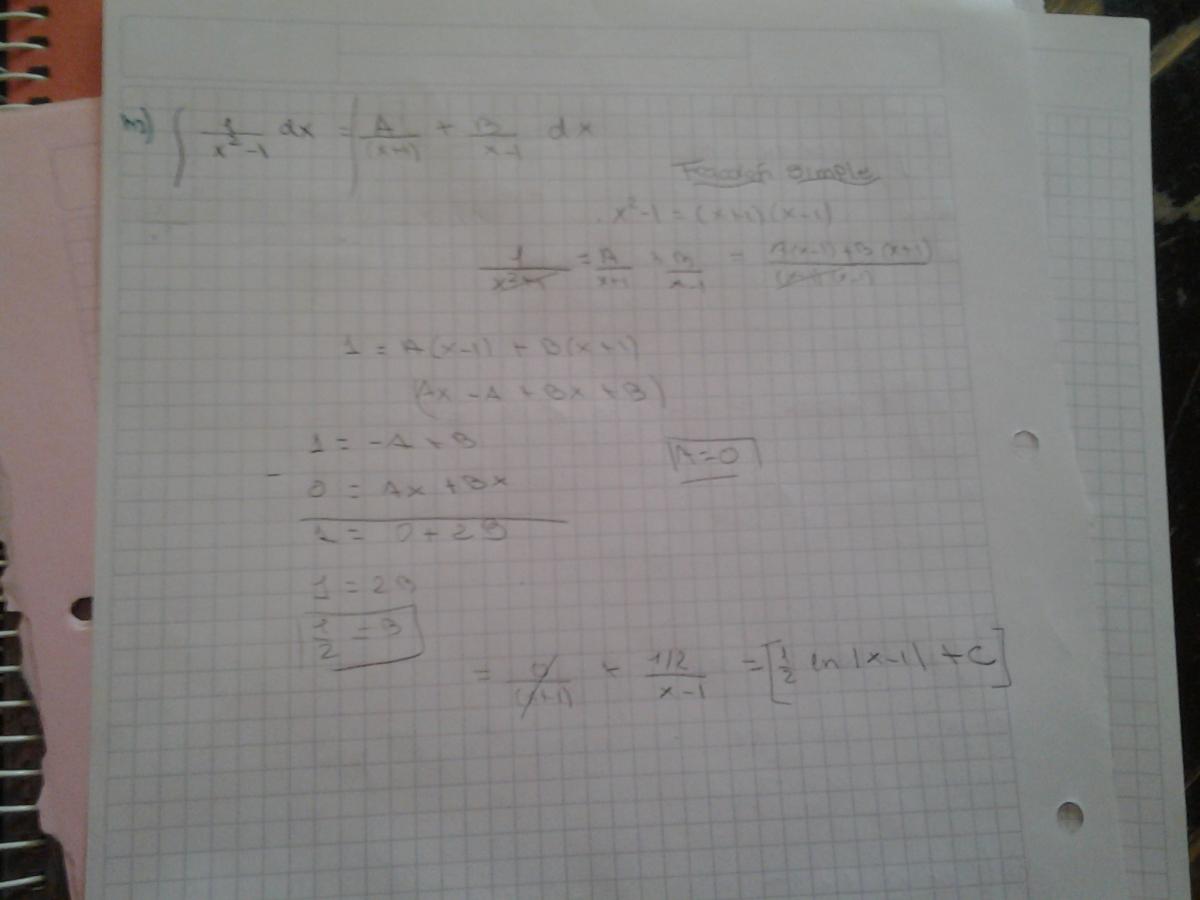 m) ∫ 1/(x²-1) dx = ∫ A/(x+1) + B/(x-1) dx
Fracción simple
x²-1 = (x+1)(x-1)
1/(x²-1) = A/(x+1) + B/(x-1) = (A(x-1)+B(x+1))/((x+1)(x-1))
1 = A(x-1) + B(x+1)
(Ax - A + Bx + B)
1 = -A + B
A=0
- 0 = Ax + Bx
1 = 0 + 2B
1 = 2B
1/2 = B
= 0/(x+1) + 1/2/(x-1) = [1/2 ln |x-1| + C]